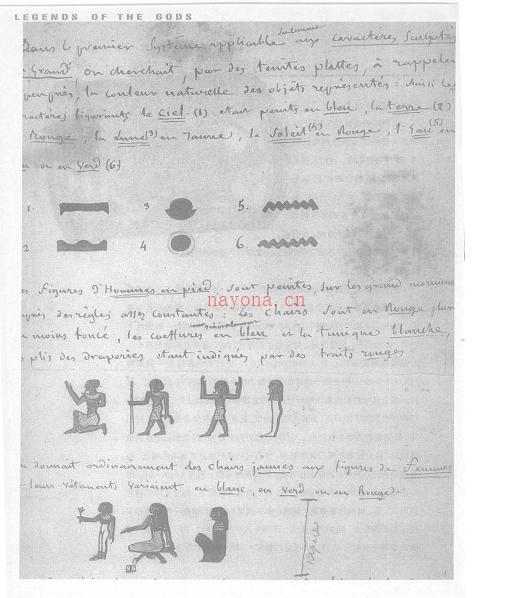 LEGENDS OF THE GODS
Dans le premier Système applicable seulement aux caractères Sculptés
Grand on cherchait, par des teintes plattes, à rappeler
la couleur naturelle des objets représentés: Ainsi les
figurants le Ciel (1) était peints en bleu, la terre (2)
Rouge, la Lune (3) en Jaune, le Soleil (4) en Rouge, l'Eau (5) en
ou en Verd (6)
1. 3 5.
2 4 6.
Figures d'Hommes en pied sont peintes, sur les grand
des règles assez constantes: les chairs sont en Rouge plus
moins foncé, les coeffures généralement en bleu et la tunique blanche,
plis des draperies étant indiqués par des traits rouges
donnait ordinairement des Chairs jaunes aux figures de Femmes
leurs vêtements variaient en blanc, en verd ou en Rouge.
nayona.cn